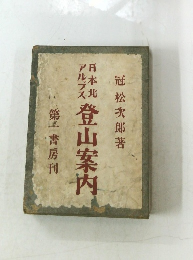 冠松次郎著
日本北
アルプス
登山案内
第一書房刊